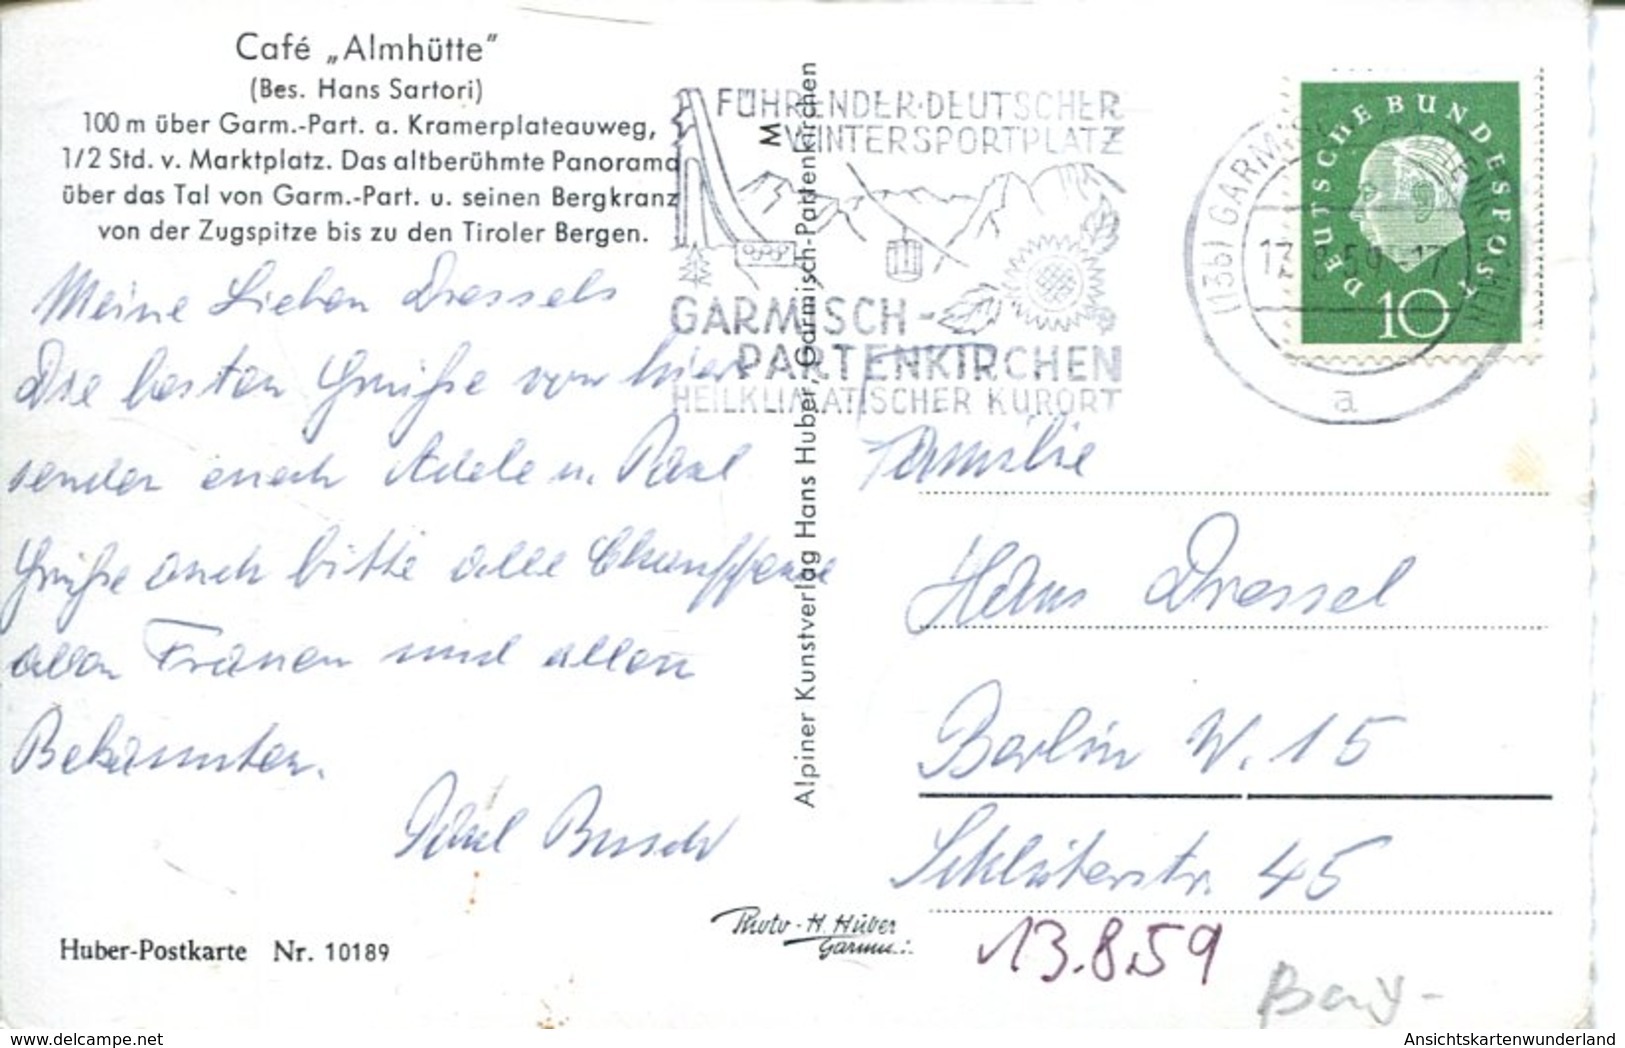 Café „Almhütte"
(Bes. Hans Sartori)
100 m über Garm.-Part. a. Kramerplateauweg,
1/2 Std. v. Marktplatz. Das altberühmte Panorama
über das Tal von Garm.-Part. u. seinen Bergkranz
von der Zugspitze bis zu den Tiroler Bergen.
Meine Lieben Dressels
Die besten Grüße von hier
senden euch Adele u. Paul
Grüße auch bitte alle Chauffeure
allen Frauen und allen
Bekannten.
Paul Busch
Huber-Postkarte Nr. 10189
M
Alpiner Kunstverlag Hans Huber, Garmisch-Partenkirchen
FÜHRENDER·DEUTSCHER
WINTERSPORTPLATZ
GARMISCH-
PARTENKIRCHEN
HEILKLIMATISCHER KURORT
DEUTSCHE BUNDESPOST
10
(13b) GARMISCH-PARTENKIRCHEN
8.59-17
a
Familie
Hans Dressel
Berlin W. 15
Schlüterstr. 45
Photo-H. Huber
Garm.
13.8.59
AnsichtskartenWunderland